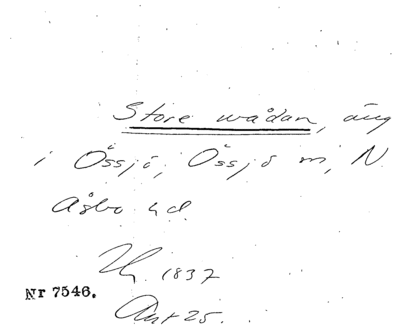 Store wådan, äng
i Össjö, Össjö sn, N.
Åsbo hd.
1837
Nr 7546.
Akt 25.